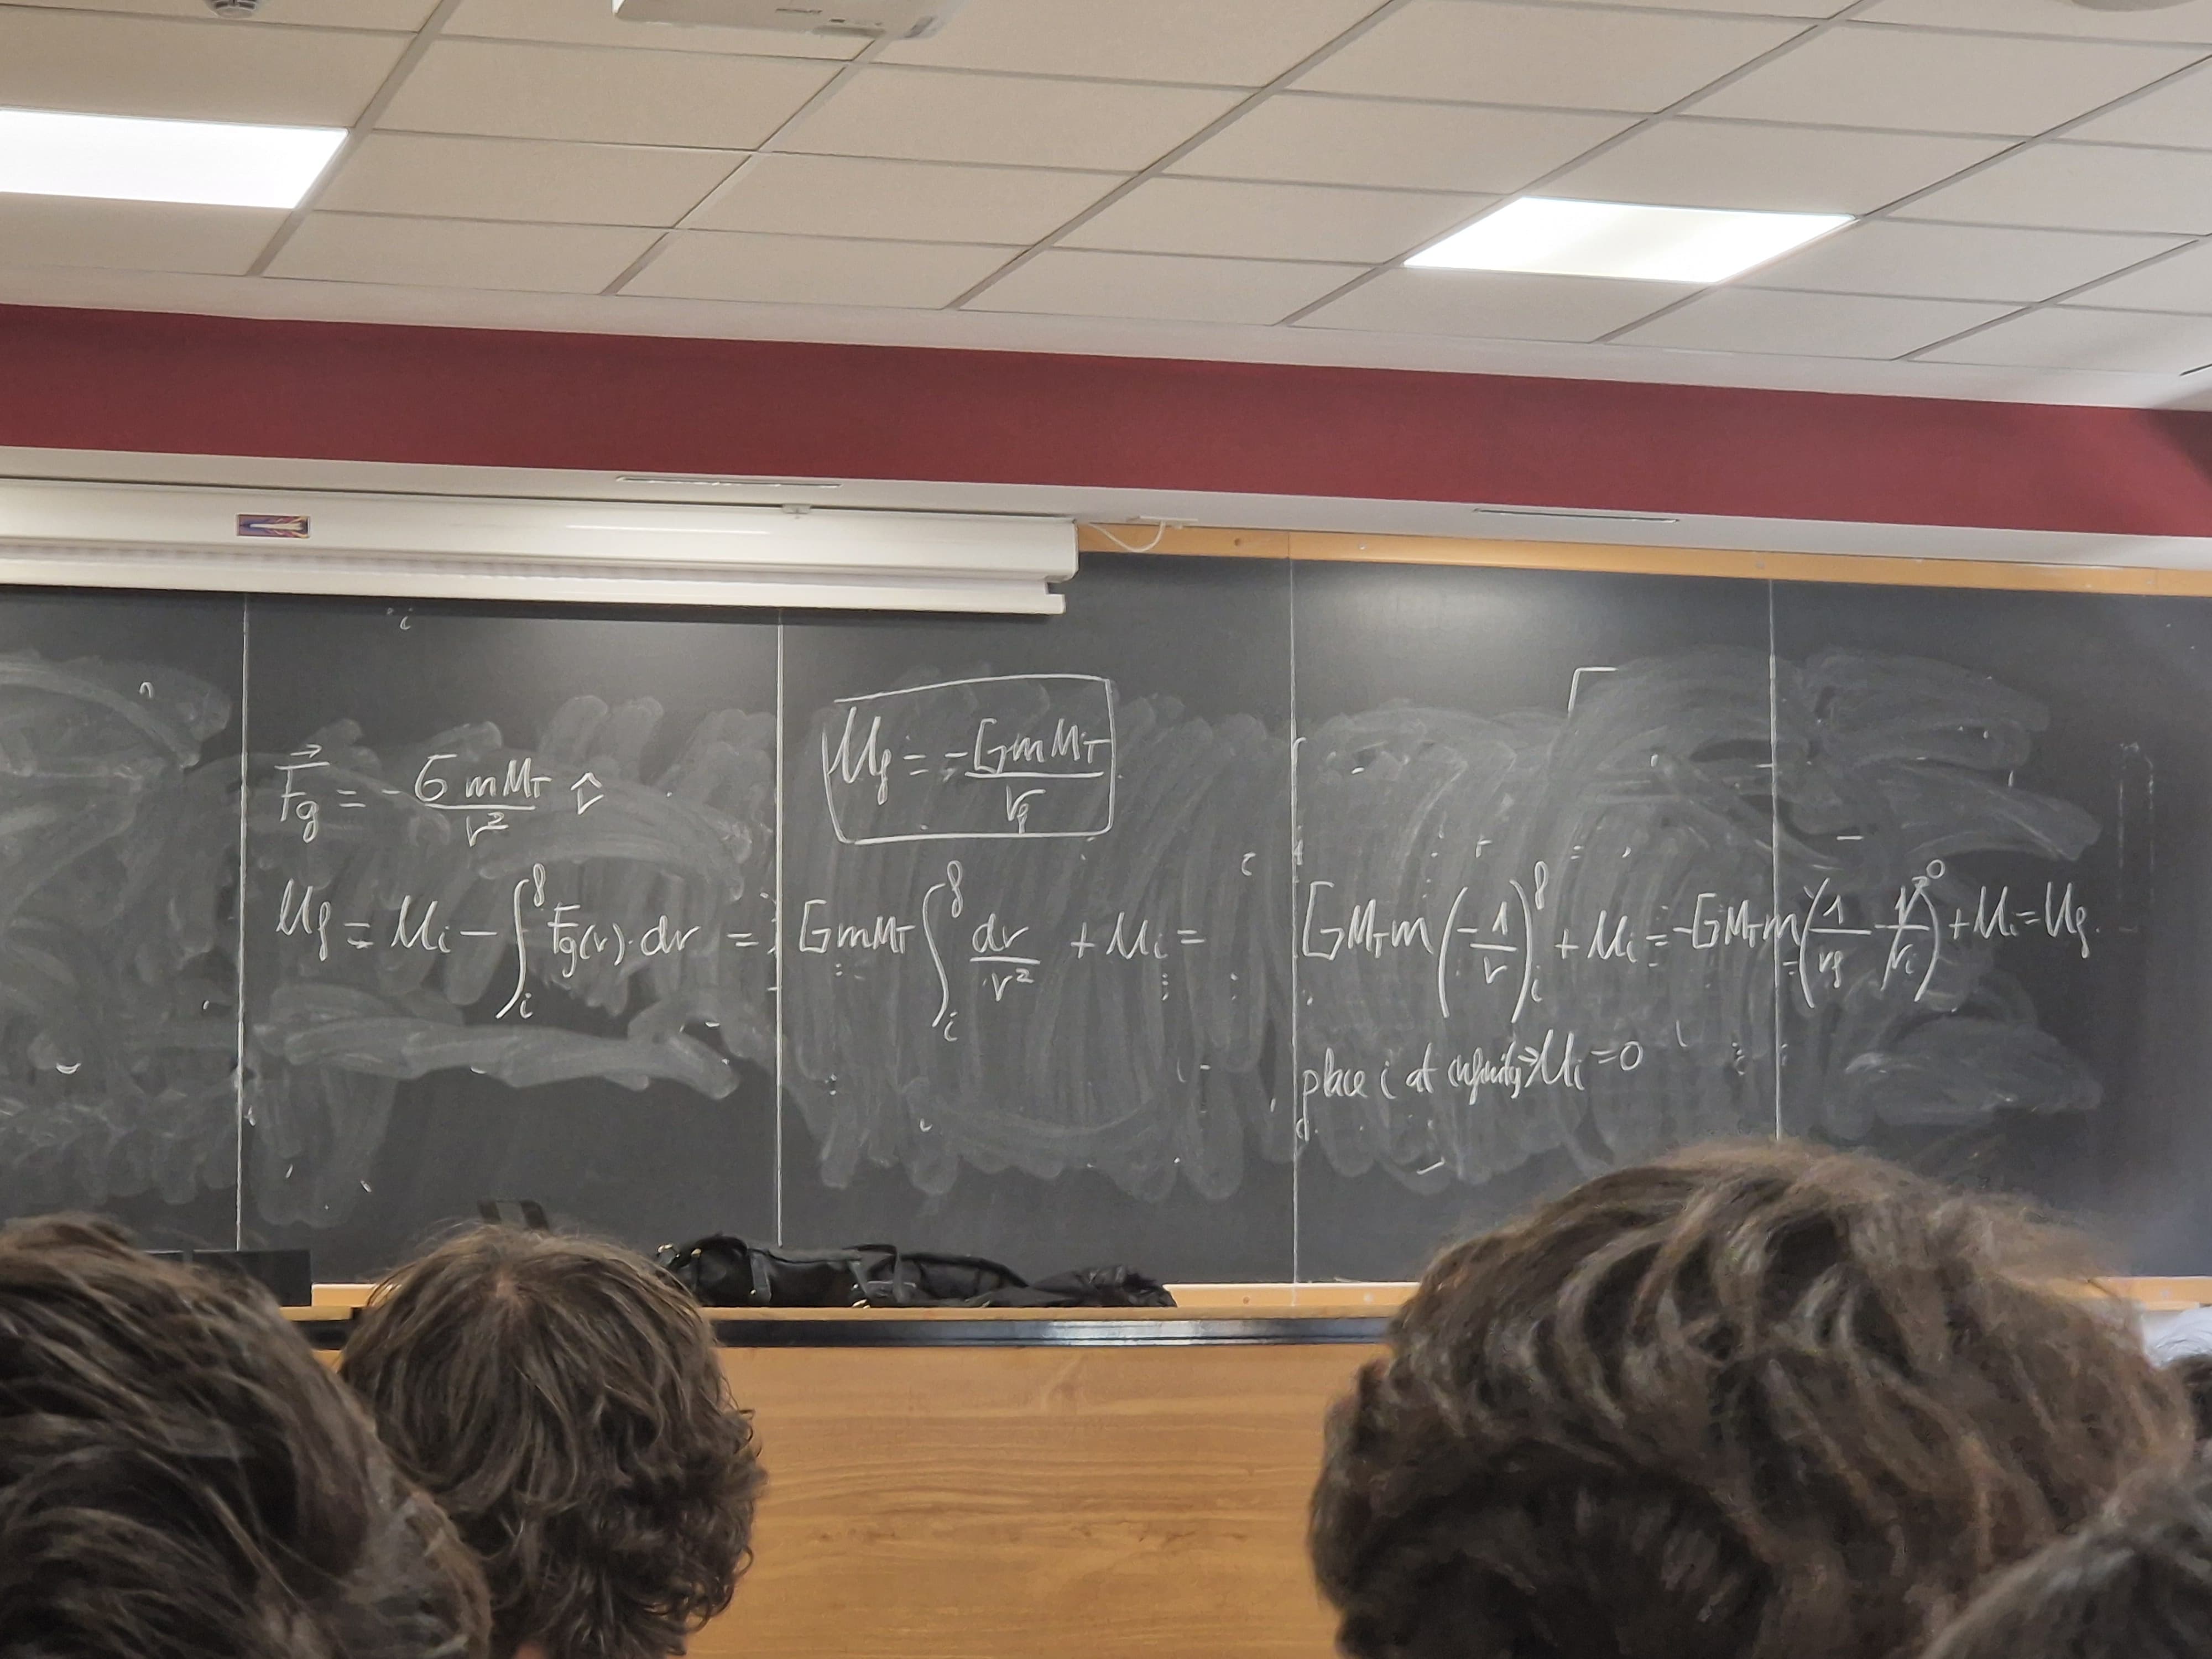 F⃗g = - G mMT / r² r̂
Uf = - GmMT / rf
Uf = Ui - ∫_i^f F⃗g(r)·dr = GmMT ∫_i^f dr / r² + Ui = GMTm (-1/r)_i^f + Ui = -GMTm (1/rf - 1/ri → 0) + Ui = Uf
place i at infinity → Ui = 0